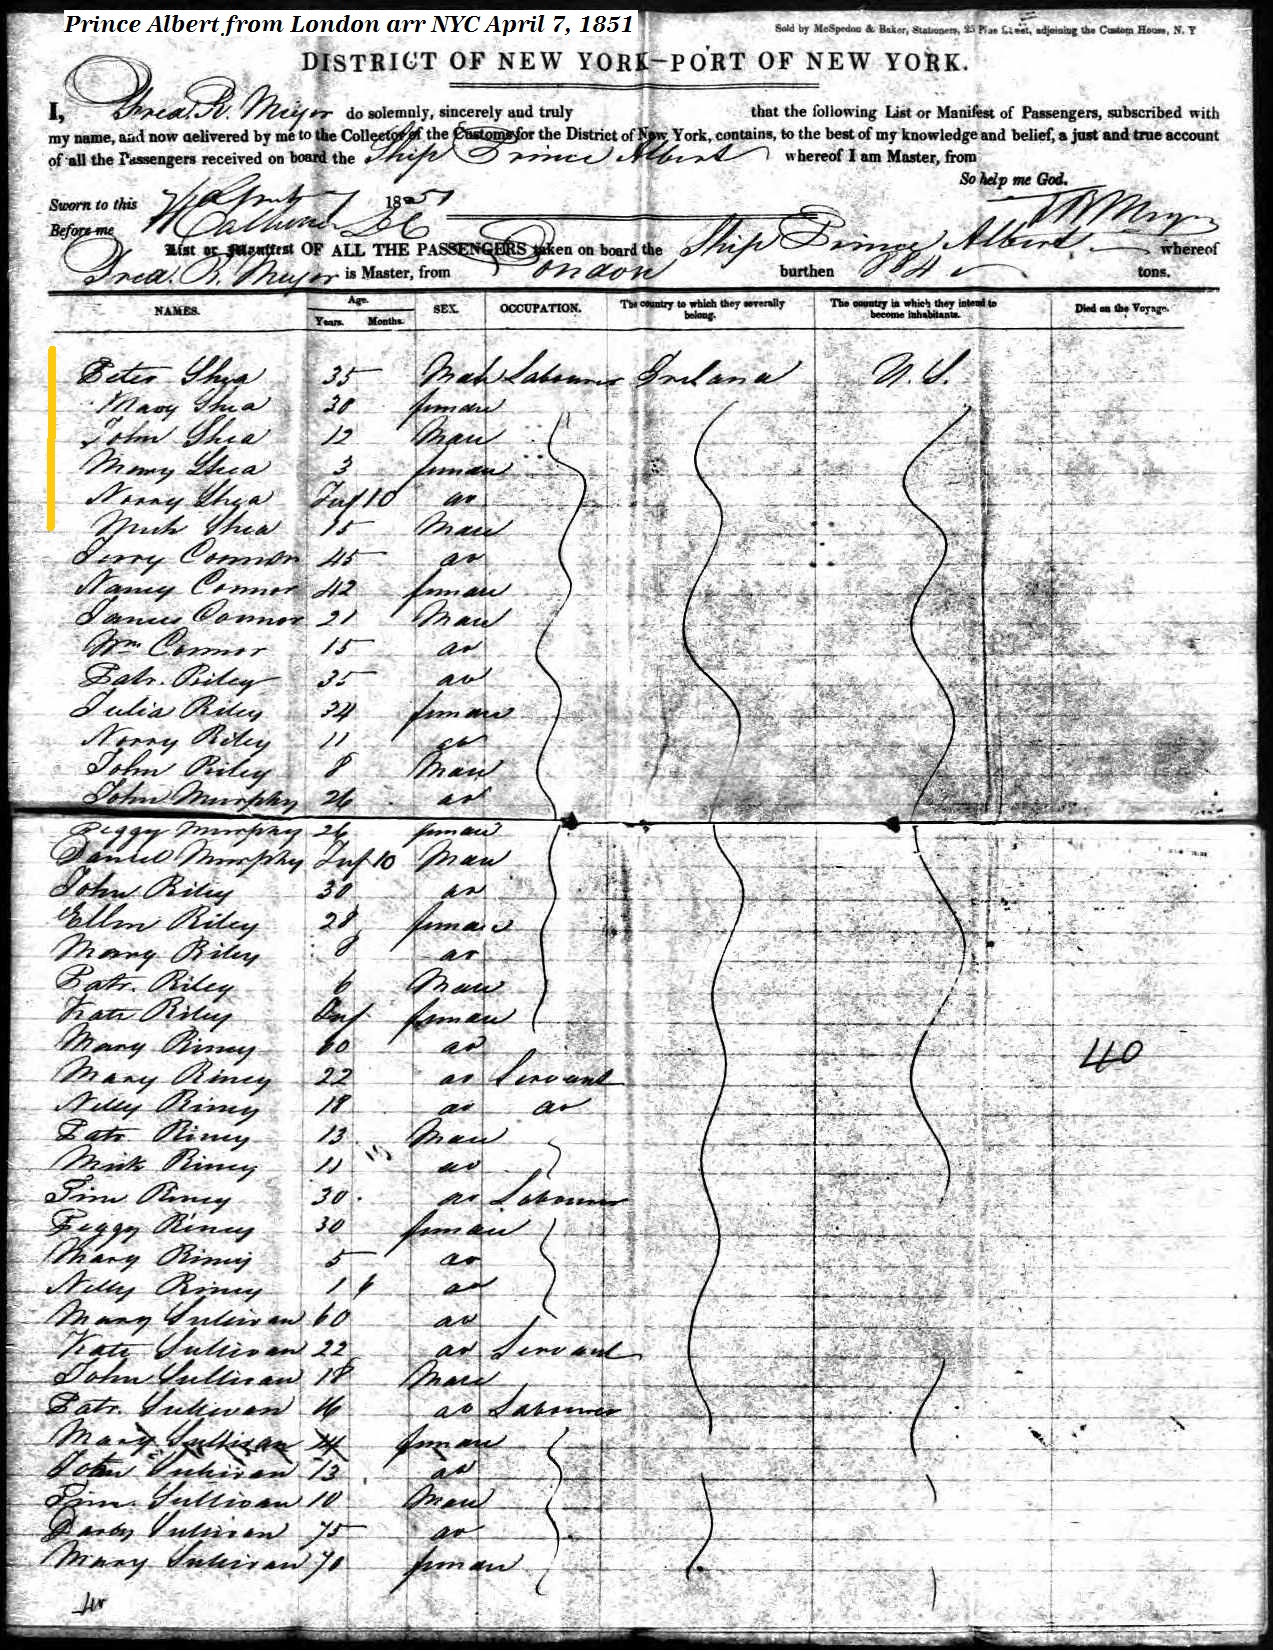 Prince Albert from London arr NYC April 7, 1851
Sold by McSpedon & Baker, Stationers, 25 Pine Street, adjoining the Custom House, N. Y
DISTRICT OF NEW YORK—PORT OF NEW YORK.
I, Fred. R. Meyer do solemnly, sincerely and truly that the following List or Manifest of Passengers, subscribed with
my name, and now delivered by me to the Collector of the Customs for the District of New York, contains, to the best of my knowledge and belief, a just and true account
of all the Passengers received on board the Ship Prince Albert whereof I am Master, from
So help me God.
Sworn to this April 7 1851
Before me
List or Manifest OF ALL THE PASSENGERS taken on board the Ship Prince Albert whereof
Fred. R. Meyer is Master, from London burthen 884 tons.
NAMES. Age. Years. Months. SEX. OCCUPATION. The country to which they severally belong. The country in which they intend to become inhabitants. Died on the Voyage.
Peter Shea 35 Male Labourer Ireland U. S.
Mary Shea 30 female
John Shea 12 Male
Mary Shea 3 female
Norry Shea Inf 10 do
Mich Shea 15 Male
Jerry Connor 45 do
Nancy Connor 42 female
James Connor 21 Male
Wm Connor 15 do
Patr. Riley 35 do
Julia Riley 34 female
Norry Riley 11 do
John Riley 8 Male
John Murphy 26 do
Peggy Murphy 26 female
Daniel Murphy Inf 10 Male
John Riley 30 do
Ellen Riley 28 female
Mary Riley 8 do
Patr. Riley 6 Male
Kate Riley Inf female
Mary Riney 60 do
Mary Riney 22 do Servant
40
Nelly Riney 18 do do
Patr. Riney 13 Male
Mick Riney 11 do
Tim Riney 30 do Labourer
Peggy Riney 30 female
Mary Riney 5 do
Nelly Riney 1 6 do
Mary Sullivan 60 do
Kate Sullivan 22 do Servant
John Sullivan 18 Male
Patr. Sullivan 16 do Labourer
Mary Sullivan 14 female
John Sullivan 13 do
Tim. Sullivan 10 Male
Darby Sullivan 75 do
Mary Sullivan 70 female